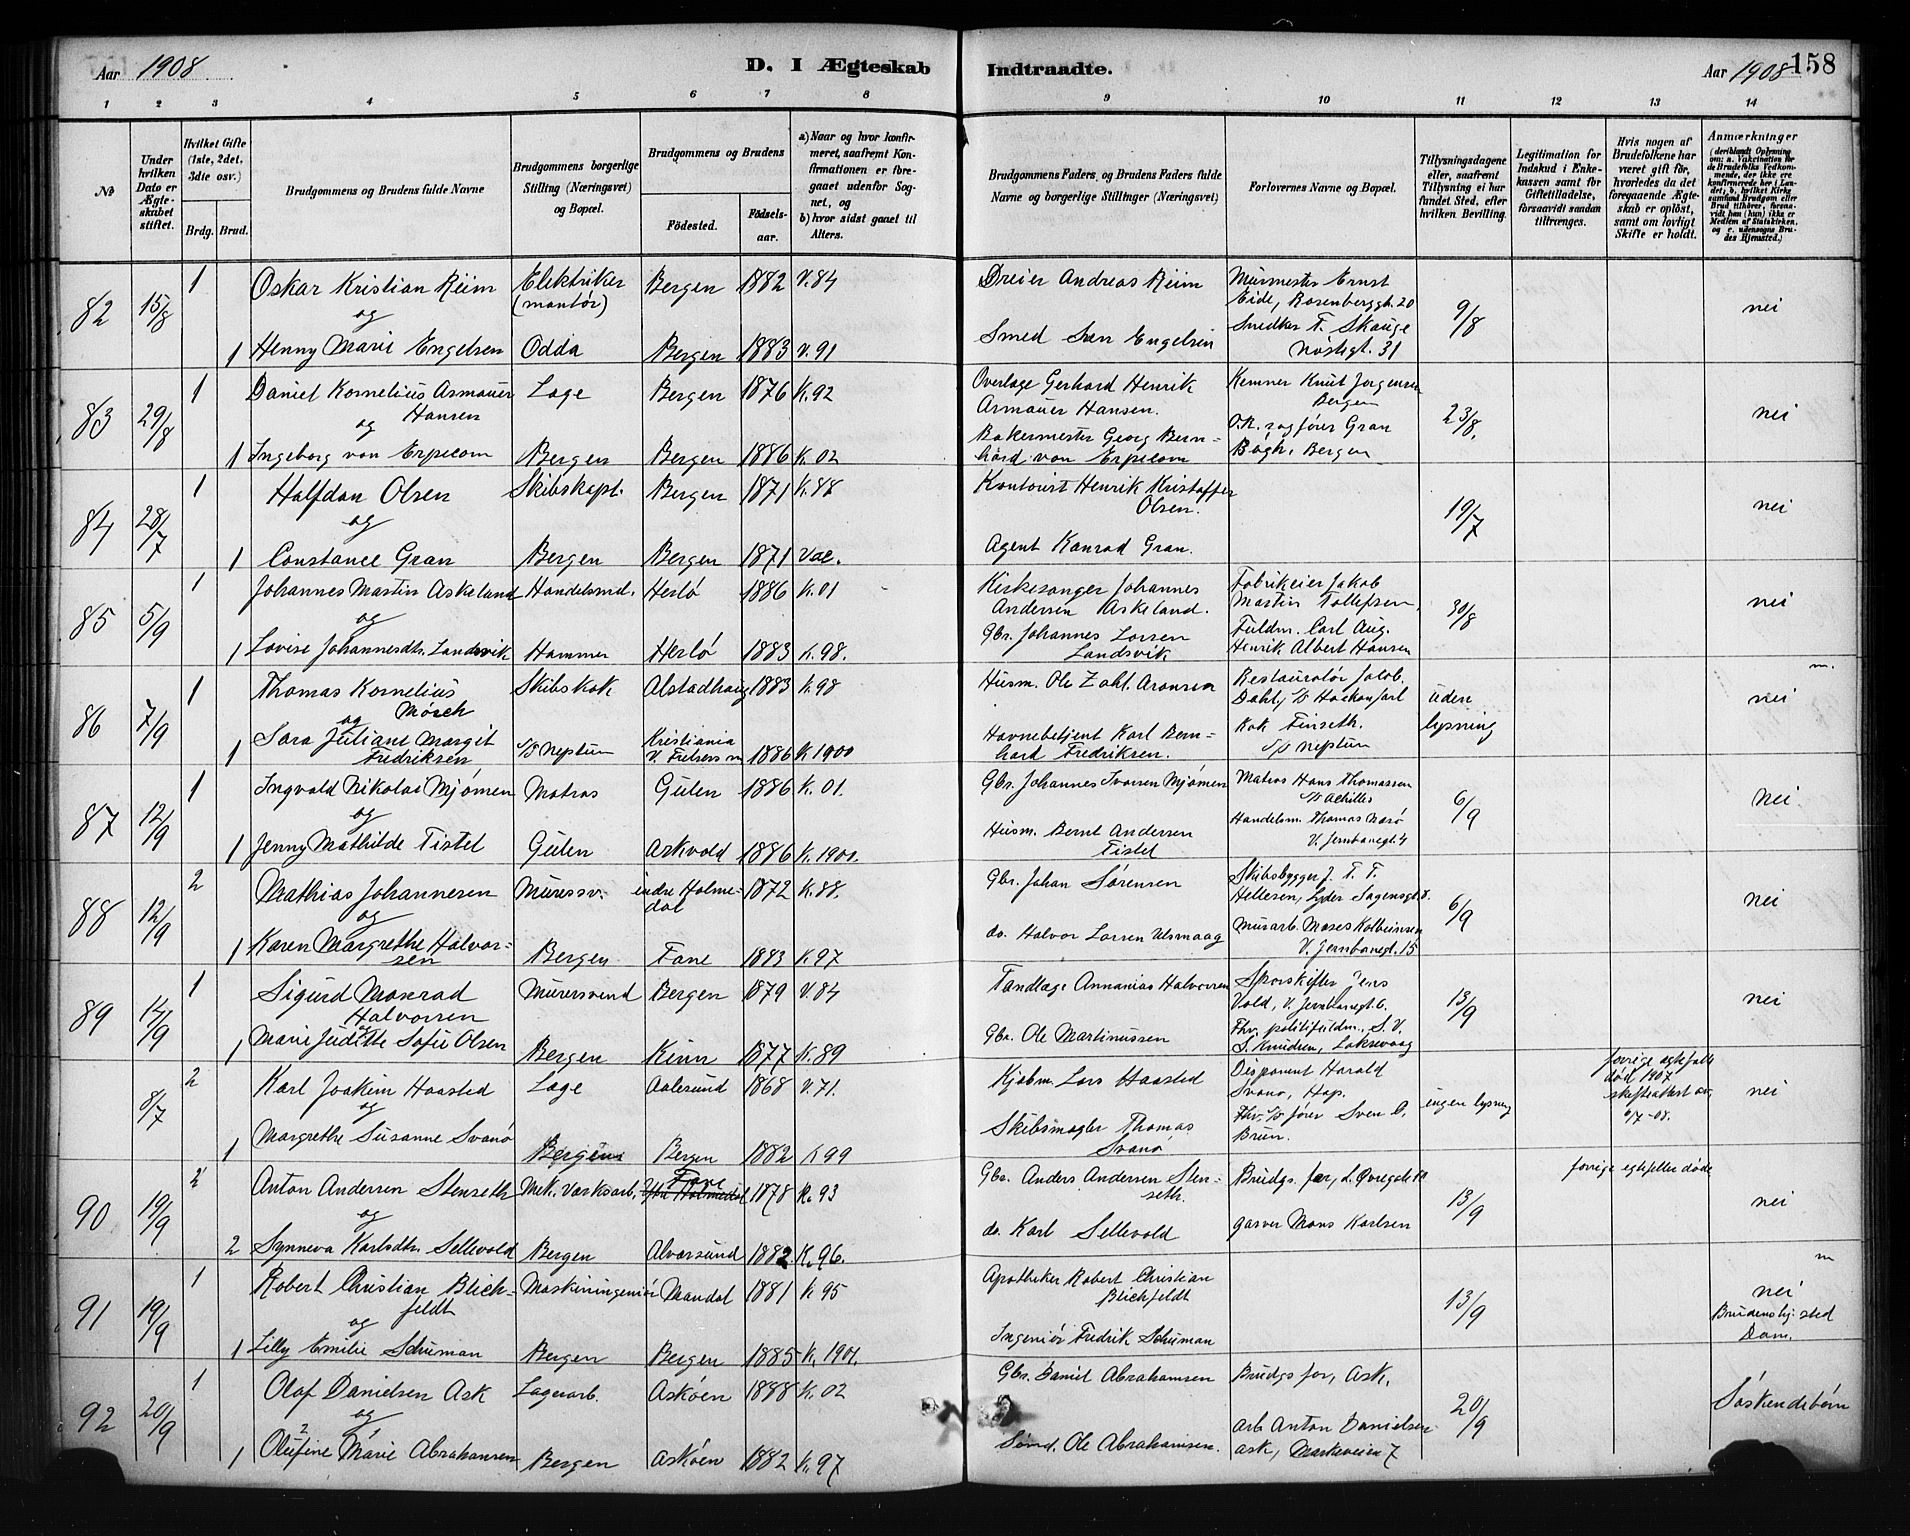 Aar 1908 D. I Ægteskab Indtraadte. Aar 1908 158
1 2 3 4 5 6 7 8 9 10 11 12 13 14
No
Under hvilken Dato er Ægteskabet stiftet.
Hvilket Gifte (1ste, 2det, 3die osv.)
Brdg. Brud.
Brudgommens og Brudens fulde Navne
Brudgommens borgerlige Stilling (Næringsvei) og Bopæl.
Brudgommens og Brudens
Fødested. Fødsels-aar.
a) Naar og hvor konfirmeret, saafremt Konfirmationen er foregaaet udenfor Sognet, og
b) hvor sidst gaaet til Alters.
Brudgommens Faders og Brudens Faders fulde Navne og borgerlige Stillinger (Næringsvei)
Forlovernes Navne og Bopæl.
Tillysningsdagene eller, saafremt Tillysning ei har fundet Sted, efter hvilken Bevilling.
Legitimation for Indskud i Enkekassen samt for Giftetilladelse, forsaavidt saadan tiltrænges.
Hvis nogen af Brudefolkene har været gift før, hvorledes da det foregaaende Ægteskab er opløst, samt om lovligt Skifte er holdt.
Anmærkninger
82 15/8 1 Oskar Kristian Reim Elektriker (montør) Bergen 1882 V. 84 Dreier Andreas Reim Murmester Ernst Eide, Rosenberggt. 20 9/8 nei
og
1 Henny Marie Engelsen Odda Bergen 1883 V. 91 Smed Sven Engelsen Snedker T. Skauge Nøstegt. 31
83 29/8 1 Daniel Kornelius Armauer Hansen Læge Bergen 1876 K. 92 Overlæge Gerhard Henrik Armauer Hansen. Kemner Knut Jørgensen Bergen 23/8. nei
og
1 Ingeborg von Erpecom Bergen Bergen 1886 K. 02 Bakermester Georg Bernhard von Erpecom O.R. sagfører Gran Bøgh, Bergen
84 28/7 1 Halfdan Olsen Skibskapt. Bergen 1871 K. 88 Kontorist Henrik Kristoffer Olsen. 19/7 nei
og
1 Constance Gran Bergen Bergen 1871 Vac. Agent Konrad Gran.
85 5/9 1 Johannes Martin Askeland Handelsmd. Herlø 1886 K. 01 Kirkesanger Johannes Andersen Askeland. Fabrikeier Jakob Martin Tollefsen, 30/8 nei
og
1 Lovise Johannesdtr. Landsvik Hammer Herlø 1883 K. 98. Gbr. Johannes Larsen Landsvik Fuldm. Carl Aug. Henrik Albert Hansen
86 7/9 1 Thomas Kornelius Mørch Skibskok Alstadhaug 1883 K. 98 Husm. Ole Zahl. Aronsen Restauratør Jakob Dahl, S/S Haakon Jarl uden lysning m. nei
og
1 Sara Juliane Margit Fredriksen S/S Neptun Kristiania V. Frelsers m 1886 K. 1900 Havnebetjent Karl Bernhard Fredriksen. Kok Finseth. S/S Neptun
87 12/9 1 Ingvald Nikolai Mjømen Matros Gulen 1886 K. 01. Gbr. Johannes Ivarsen Mjømen Matros Hans Thomassen S/S Achilles 6/9 nei.
og
1 Jenny Mathilde Tistel Gulen Askvold 1886 K. 1901. Husm. Bernt Andersen Tistel Handelsm. Thomas Norø V. Jernbanegt. 4
88 12/9 2 Mathias Johannesen Muressv. indre Holmedal 1872 K. 88. Gbr. Johan Sørensen Skibsbygger J. T. T. Hellesen, Lyder Sagensgt. 8. 6/9 nei
og
1 Karen Margrethe Halvorsen Bergen Fane 1883 K. 97 do. Halvor Larsen Ulsmaag Murarb. Moses Kolbeinsen V. Jernbanegt. 15
89 14/9 1 Sigurd Monrad Halvorsen Murersvend Bergen 1879 V. 84 Tandlæge Annanias Halvorsen Sporskifter Jens Vold, V. Jernbanegt. 6. 13/9 nei
1 Marie Juditte Sofie Olsen Bergen Kinn 1877 K. 89 Gbr. Ole Martinussen Fhv. politifuldm., S. V. S. Knudsen, Laksevaag
8/7 2 Karl Joakim Haasted Læge Aalesund 1868 V. 71. Kjøbm. Lars Haasted Disponent Harald Svanø, Hop. ingen lysning forrige egtefælle død 1907 skifteattest av 6/7-08. nei
og
1 Margrethe Susanne Svanø Bergen Bergen 1882 K 99 Skibsmægler Thomas Svanø Fhv. S/S fører Sven O. Brun.
90 19/9 2 Anton Andersen Stenseth Mek. Værksarb. Fane 1878 K. 93 Gbr. Anders Andersen Stenseth. Brudgs far, 13/9 forrige egtefeller døde nei
og
2 Synneva Karlsdtr. Sellevold Bergen Alversund 1882. K. 96. do. Karl Sellevold garver Mons Karlsen
91 19/9 1 Robert Christian Blichfeldt Maskiningeniør Mandal 1881 K 95 Apotheker Robert Christian Blichfeldt 13/9 m nei Brudens hj. sted Dom.
og
1 Lilly Emilie Schuman Bergen Bergen 1885 K. 1901. Ingeniør Fredrik Schuman
92 20/9 1 Olaf Danielsen Ask Lagerarb. Askøen 1888 K. 02 Gbr. Daniel Abrahamsen Brudgs far, Ask. 20/9 Søskendebørn
og
1 Olufine Marie Abrahamsen Bergen Askøen 1882 K. 97 Ole Abrahamsen. arb Anton Danielsen ask, Markeveien 7